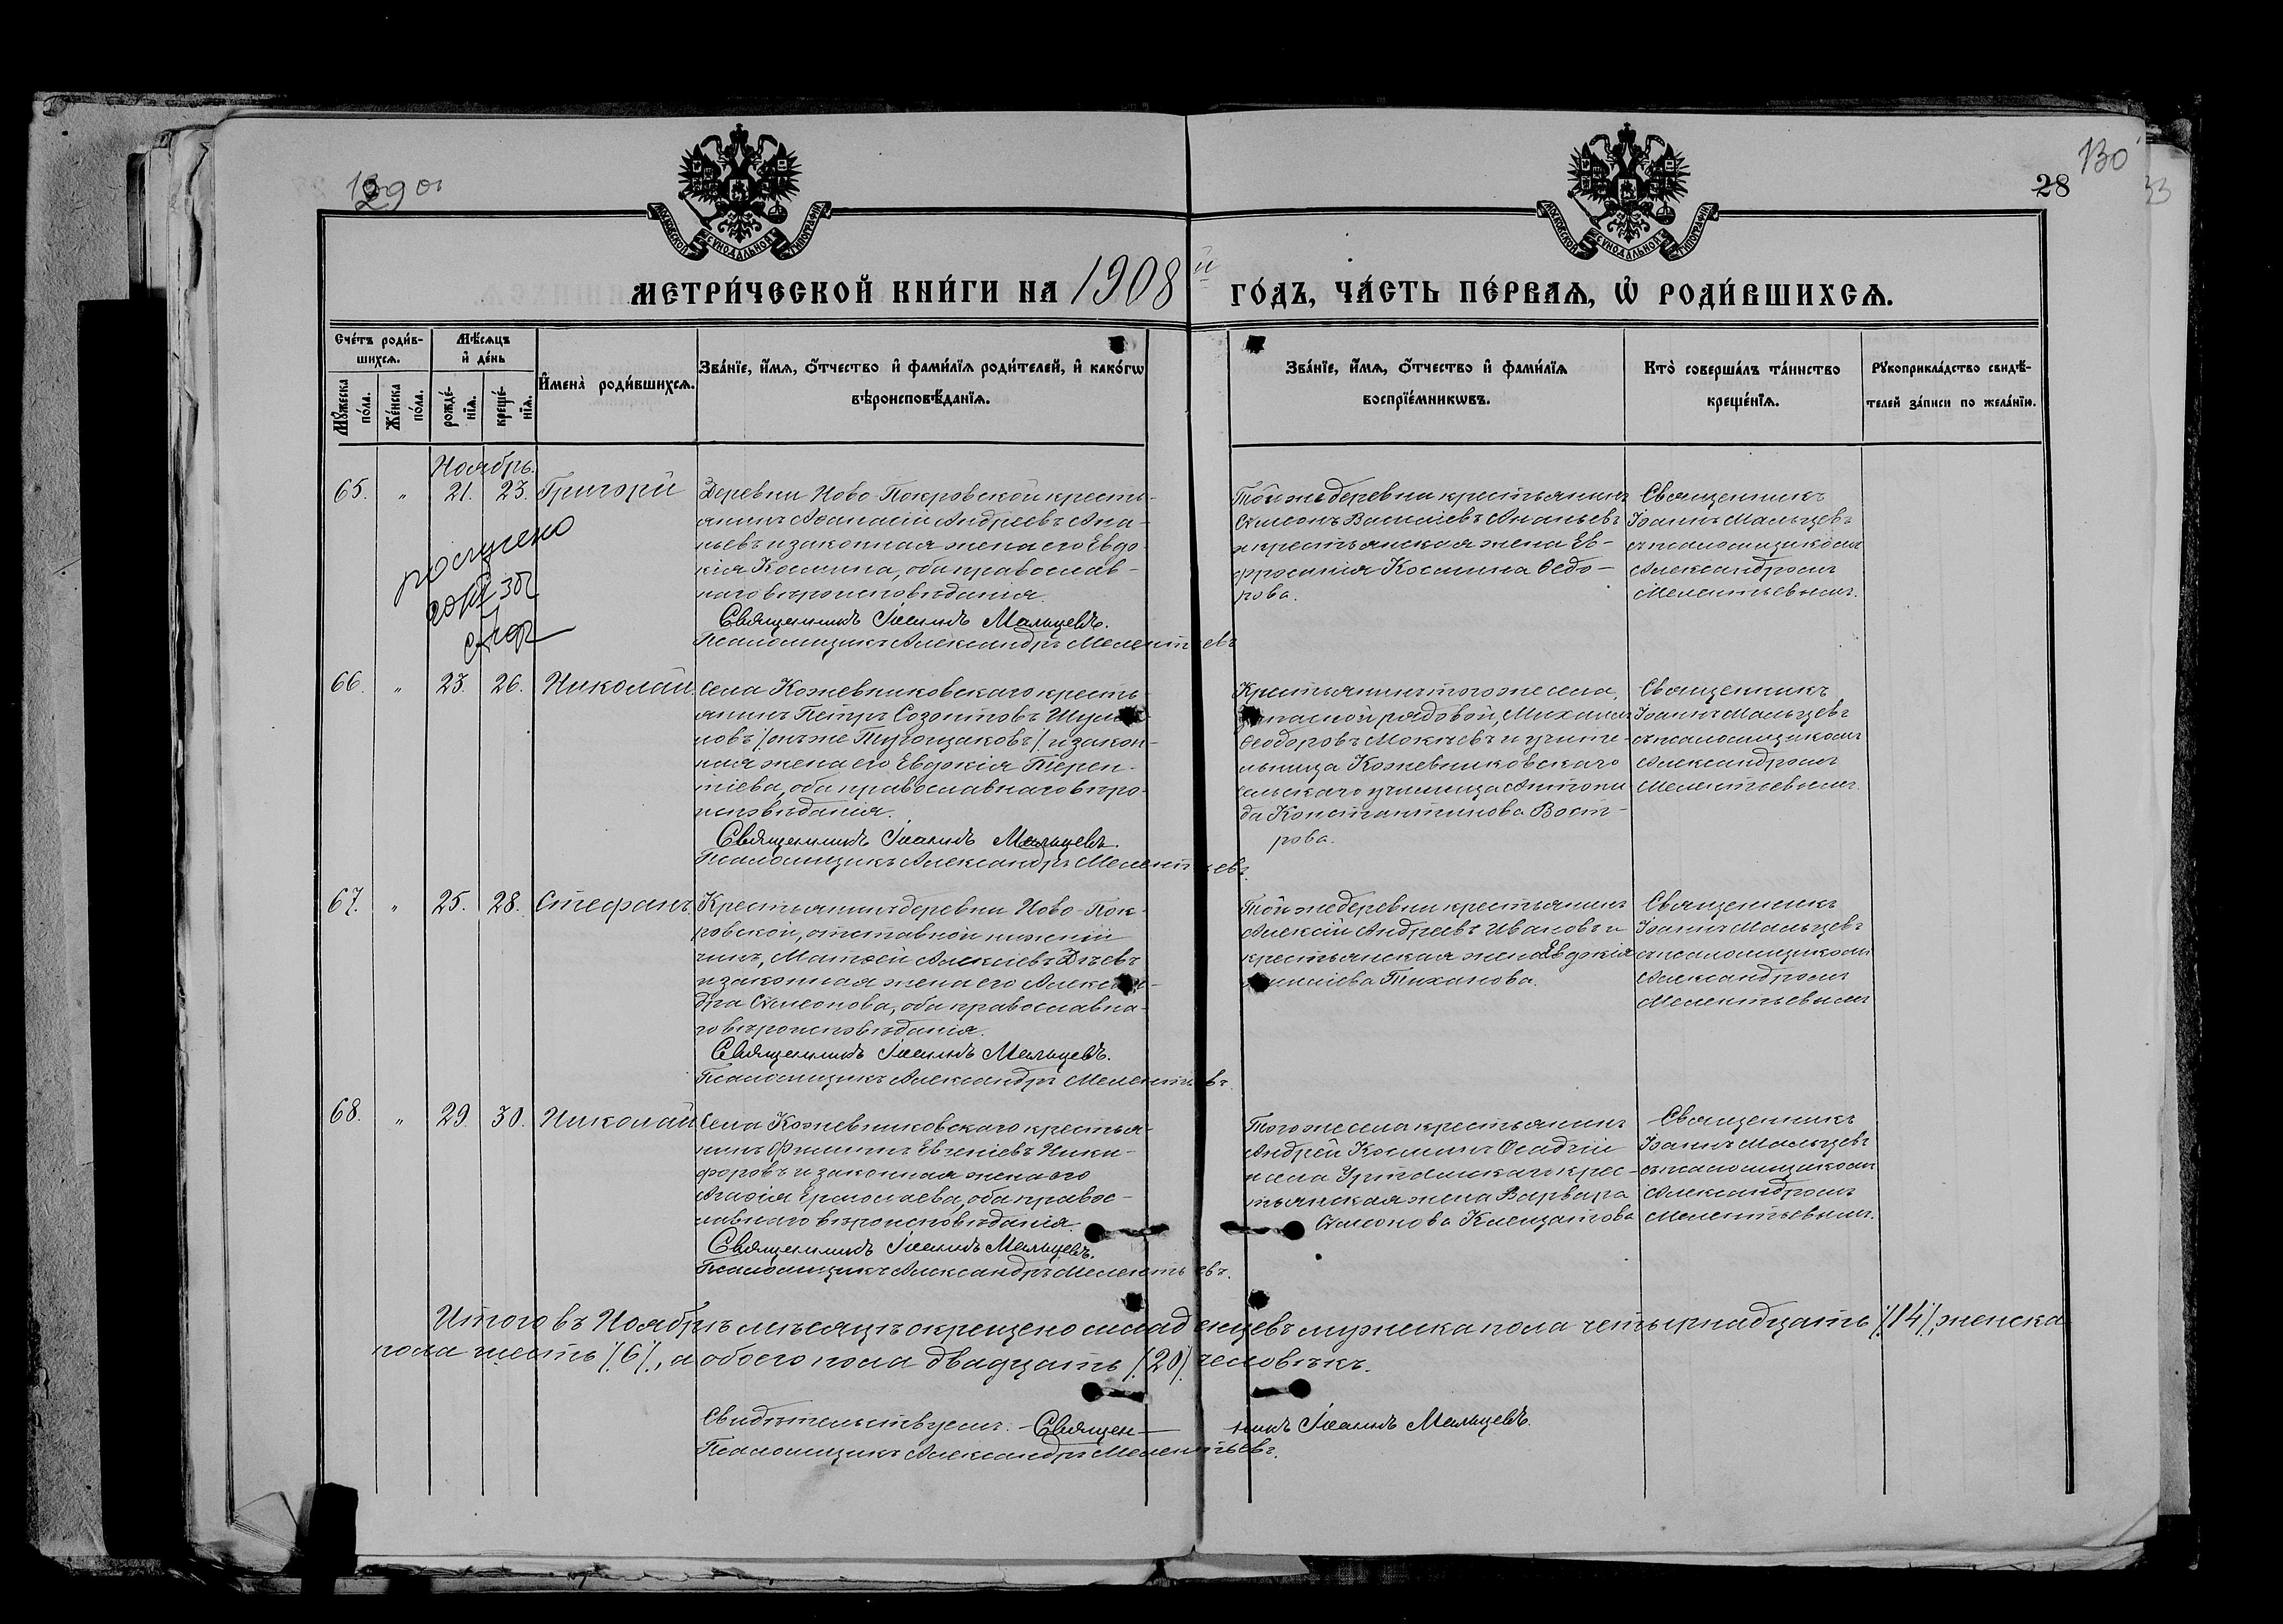 129 об
130
28
33
МОСКОВСКОЙ СѴНОДАЛЬНОЙ ТИПОГРАФІИ
МОСКОВСКОЙ СѴНОДАЛЬНОЙ ТИПОГРАФІИ
МЕТРИ́ЧЕСКОЙ КНИ́ГИ НА 1908й ГО́ДЪ, ЧА́СТЬ ПЕ́РВАѦ, Ѡ РОДИ́ВШИХСѦ.
Сче́тъ роди́в-
шихсѧ.
Мꙋ́жеска по́ла.
Же́нска по́ла.
Мѣ́сѧцъ и де́нь
рожде́-
нїѧ.
креще́-
нїѧ.
И҆мена̀ роди́вшихсѧ.
Зва́нїе, и҆́мѧ, ѻ҆́тчество и҆ фами́лїѧ роди́телей, и҆ како́гѡ
вѣроисповѣ́данїѧ.
Зва́нїе, и҆́мѧ, ѻ҆́тчество и҆ фами́лїѧ
воспрїе́мникѡвъ.
Кто̀ соверша́лъ та́инство
креще́нїѧ.
Рꙋкоприкла́дство свидѣ́-
телей за́писи по жела́нїю.
Ноябрь.
65. " 21. 23. Григорій
Деревни Ново-Покровской кресть-
янинъ Аѳанасій Андреевъ Ана-
ньевъ и законная жена его Евдо-
кія Космина, оба православ-
наго вѣроисповѣданія.
Священникъ Іоаннъ Мальцевъ.
Псаломщикъ Александръ Мелентьевъ
Той же деревни крестьянинъ
Сѵмеонъ Василіевъ Ананьевъ
и крестьянская жена Ев-
фросинія Космина Ѳедо-
рова.
Священникъ
Іоаннъ Мальцевъ
съ псаломщикомъ
Александромъ
Мелентьевымъ.
66. " 23. 26. Николай
Села Кожевниковскаго кресть-
янинъ Петръ Созонтовъ
новъ /онъ же / и закон-
ная жена его Евдокія Терен-
тіева, оба православнаго вѣро-
исповѣданія.
Священникъ Іоаннъ Мальцевъ.
Псаломщикъ Александръ Мелентьевъ.
Крестьянинъ того же села,
запасной рядовой, Михаилъ
Ѳеодоровъ Мокѣевъ и учите-
льница Кожевниковскаго
сельскаго училища Антони-
да Константинова Вост-
рова.
Священникъ
Іоаннъ Мальцевъ
съ псаломщикомъ
Александромъ
Мелентьевымъ.
67. " 25. 28. Стефанъ
Крестьянинъ деревни Ново-Пок-
ровской, отставной нижній
чинъ, Матѳей Алексіевъ
и законная жена его Алексан-
дра Сѵмеонова, оба православна-
го вѣроисповѣданія.
Священникъ Іоаннъ Мальцевъ.
Псаломщикъ Александръ Мелентьевъ.
Той же деревни крестьянинъ
Алексій Андреевъ Ивановъ и
крестьянская жена Евдокія
Тиханова.
Священникъ
Іоаннъ Мальцевъ
съ псаломщикомъ
Александромъ
Мелентьевымъ
68. " 29. 30. Николай
Села Кожевниковскаго крестья-
нинъ Филиппъ Евгеніевъ Ники-
форовъ и законная жена его
Агаѳія Ермолаева, оба правос-
лавнаго вѣроисповѣданія.
Священникъ Іоаннъ Мальцевъ.
Псаломщикъ Александръ Мелентьевъ.
Того же села крестьянинъ
Андрей Космин Осадчій
и села Уртамскаго крес-
тьянская жена Варвара
Сѵмеонова
Священникъ
Іоаннъ Мальцевъ
съ псаломщикомъ
Александромъ
Мелентьевымъ.
Итого въ Ноябрѣ мѣсяцѣ окрещено младенцевъ мужеска пола четырнадцать /14/, женска
пола шесть /6/, а обоего пола двадцать /20/ человѣкъ.
Свидѣтельствуемъ: Священникъ Іоаннъ Мальцевъ.
Псаломщикъ Александръ Мелентьевъ.